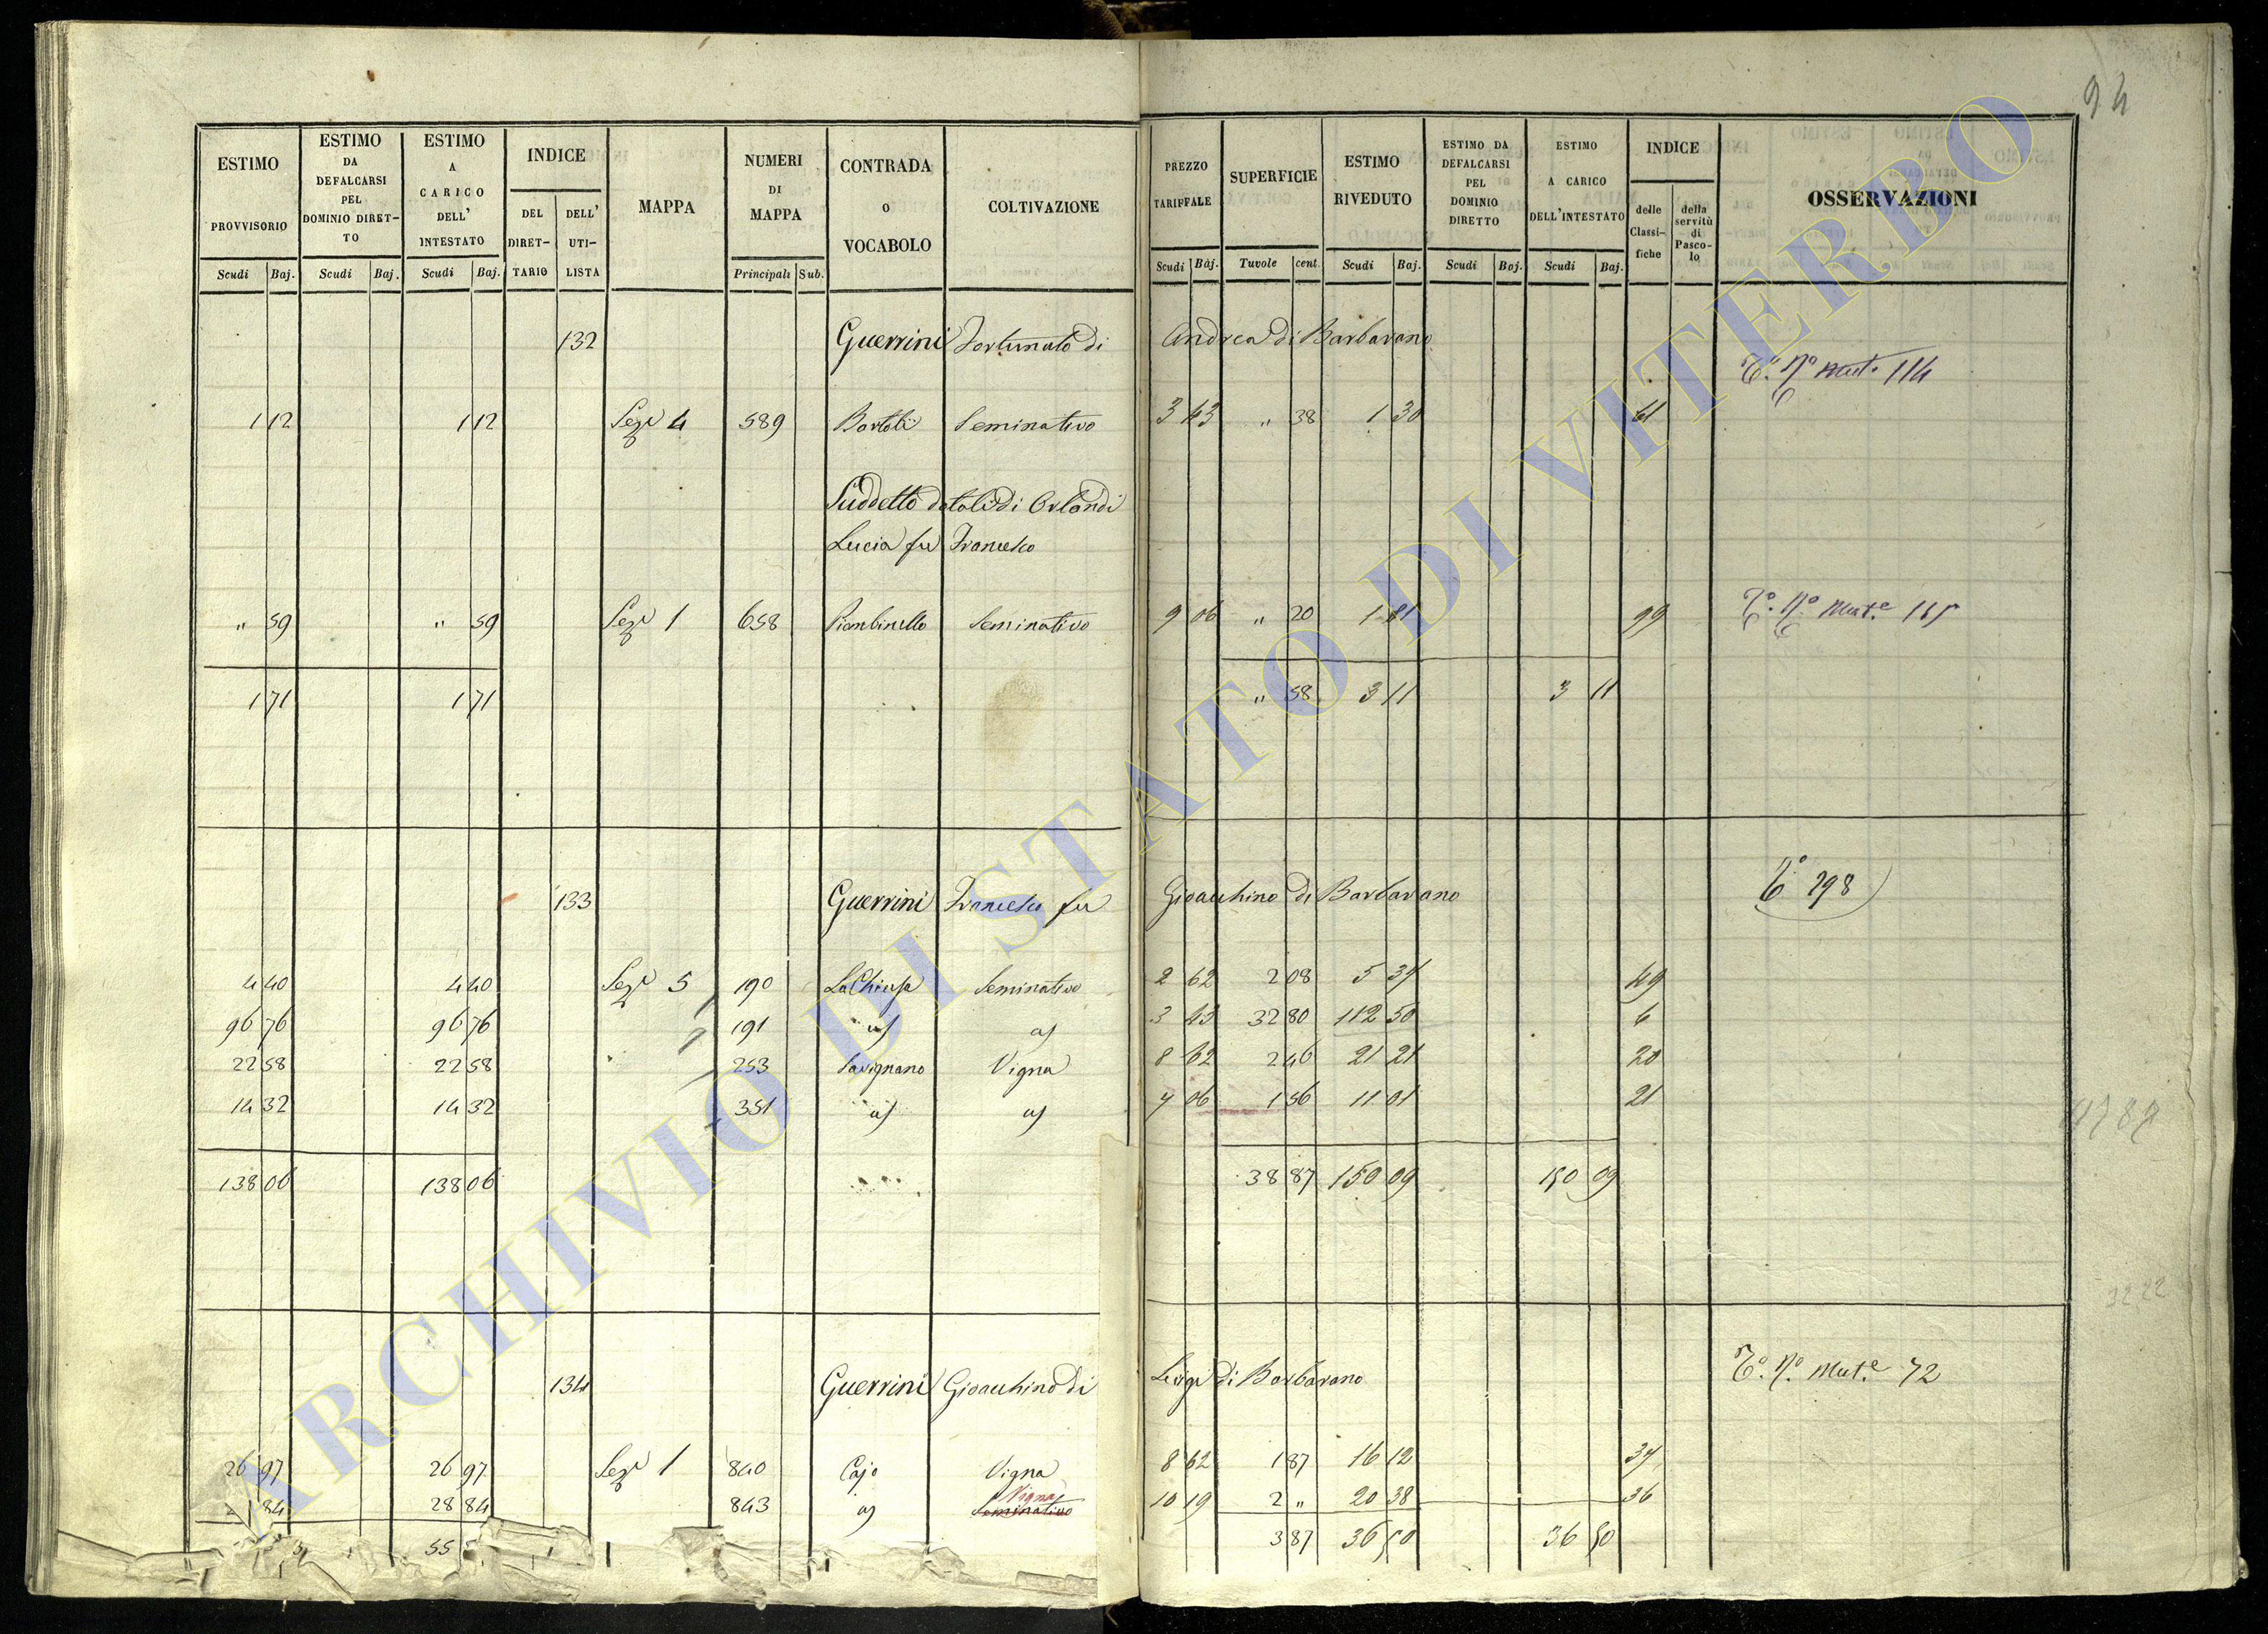 94
ESTIMO PROVVISORIO
ESTIMO DA DEFALCARSI PEL DOMINIO DIRET-TO
ESTIMO A CARICO DELL' INTESTATO
INDICE
DEL DIRET-TARIO
DELL' UTI-LISTA
MAPPA
NUMERI DI MAPPA
CONTRADA O VOCABOLO
COLTIVAZIONE
PREZZO TARIFFALE
SUPERFICIE
ESTIMO RIVEDUTO
ESTIMO DA DEFALCARSI PEL DOMINIO DIRETTO
ESTIMO A CARICO DELL'INTESTATO
INDICE
delle Classi-fiche
della servitù di Pasco-lo
OSSERVAZIONI
Scudi Baj. Scudi Baj. Scudi Baj. Principali Sub. Scudi Baj. Tavole cent. Scudi Baj. Scudi Baj. Scudi Baj.
132 Guerrini Fortunato di Andrea di Barbarano
T.º N.º Mut.e 114
1 12 1 12 Sez.e 4 589 Bartoli Seminativo 3 43 " 38 1 30 61
Suddetto dotali di Orlandi
Lucia fu Francesco
" 59 " 59 Sez.e 1 658 Piombinello Seminativo 9 06 " 20 1 81 99 T.º N.º Mut.e
1 71 1 71 " 58 3 11 3 11
133 Guerrini Francesco fu Gioacchino di Barbarano T.º 298
4 40 4 40 Sez.e 5 190 La Chiusa Seminativo 2 62 2 08 5 37 49
96 76 96 76 191 3 43 32 80 112 50 6
22 58 22 58 253 Savignano Vigna 8 62 2 46 21 21 20
14 32 14 32 351 7 06 1 56 11 01 21
138 06 138 06 38 87 150 09 150 09
134 Guerrini Gioacchino di Luigi di Barbarano T.º N.º Mut.e 72
26 97 26 97 Sez.e 1 840 Cajo Vigna 8 62 1 87 16 12 34
84 28 84 843 Vigna Seminativo 10 19 2 " 20 38 36
55 3 87 36 50 36 50
ARCHIVIO DI STATO DI VITERBO